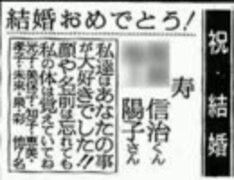 結婚おめでとう!
祝・結婚
寿
信治くん
陽子さん
私達はあなたの事
が大好きでした!!
顔や名前は忘れても
私の体は覚えていてね
光子・美保子・知子・恵美・
孝子・未来・泉・彩 他7名